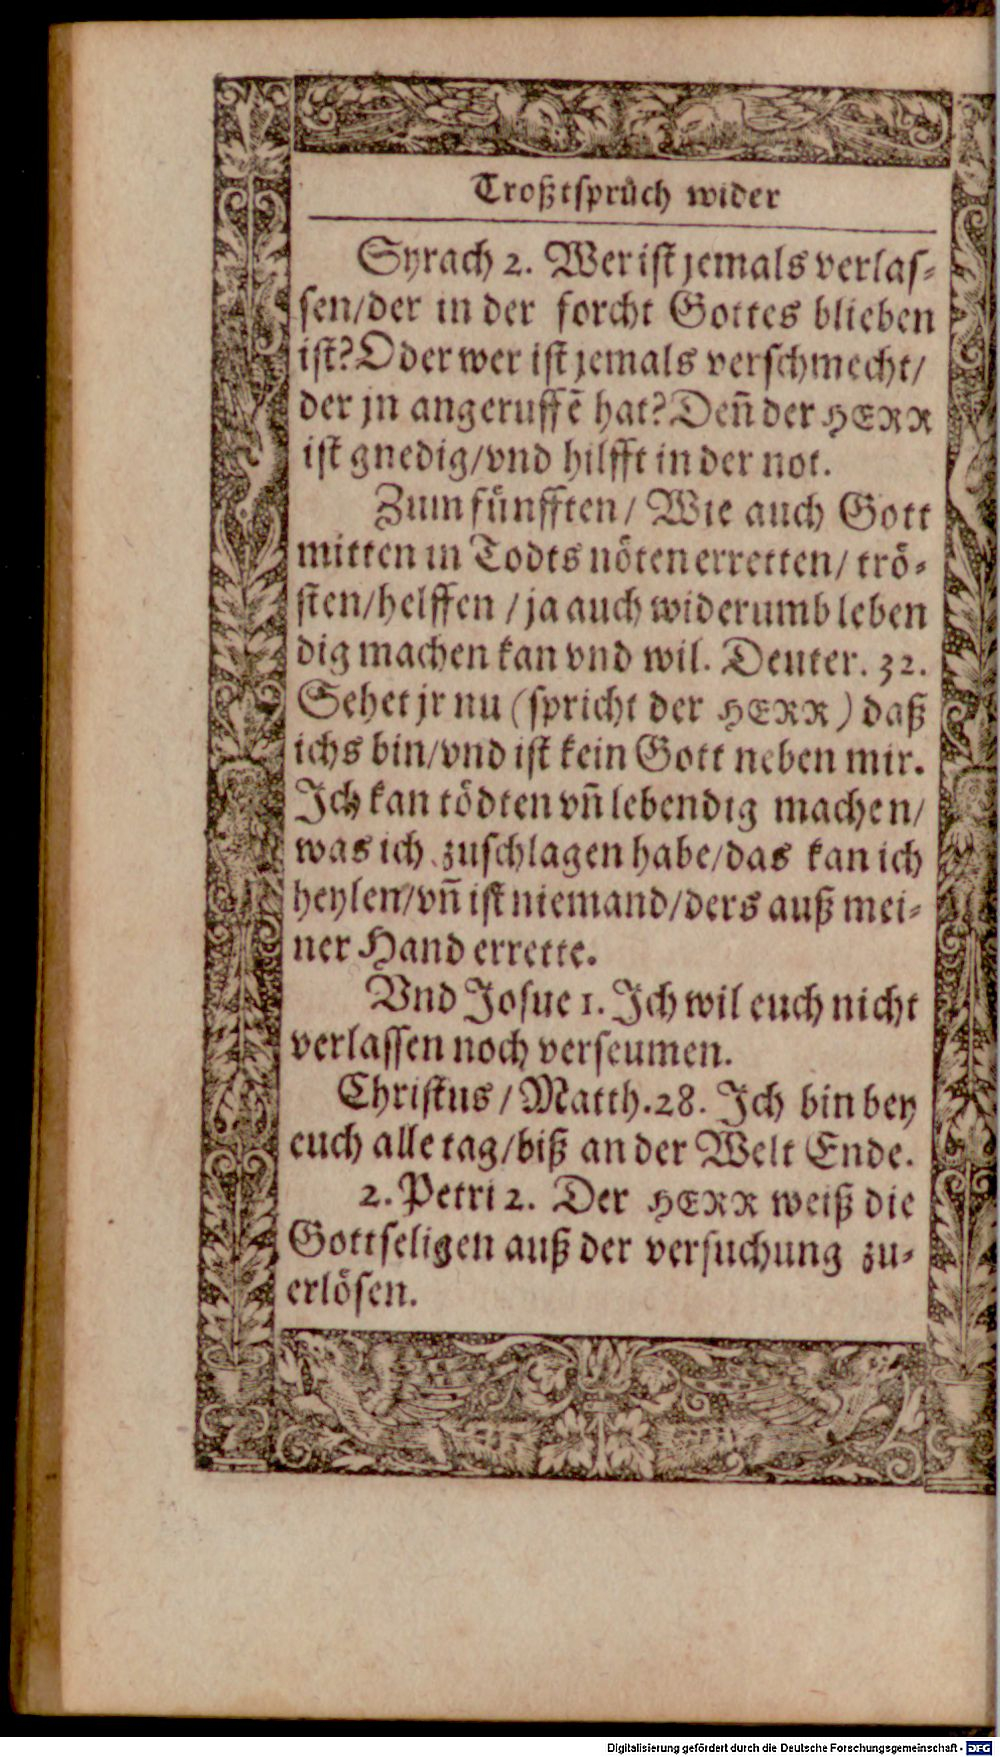 Troßtsprüch wider
Syrach 2. Wer ist jemals verlas-
sen/der in der forcht Gottes blieben
ist? Oder wer ist jemals verschmecht/
der jn angeruffē hat? Deñ der HERR
ist gnedig/vnd hilfft in der not.
Zum fünfften/ Wie auch Gott
mitten in Todts nöten erretten/ trö-
sten/helffen /ja auch widerumb leben
dig machen kan vnd wil. Deuter. 32.
Sehet jr nu (spricht der HERR) daß
ichs bin/vnd ist kein Gott neben mir.
Ich kan tödten vñ lebendig machen/
was ich zuschlagen habe/das kan ich
heylen/vñ ist niemand/ders auß mei-
ner Hand errette.
Vnd Josue 1. Ich wil euch nicht
verlassen noch verseumen.
Christus/Matth.28. Ich bin bey
euch alle tag/biß an der Welt Ende.
2. Petri 2. Der HERR weiß die
Gottseligen auß der versuchung zu-
erlösen.
Digitalisierung gefördert durch die Deutsche Forschungsgemeinschaft - DFG